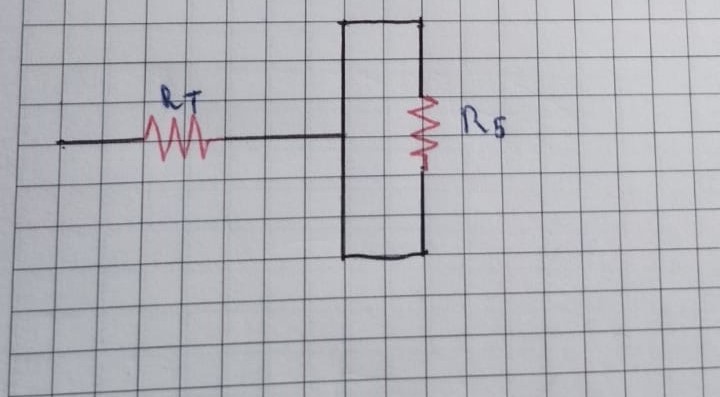 RT
R5